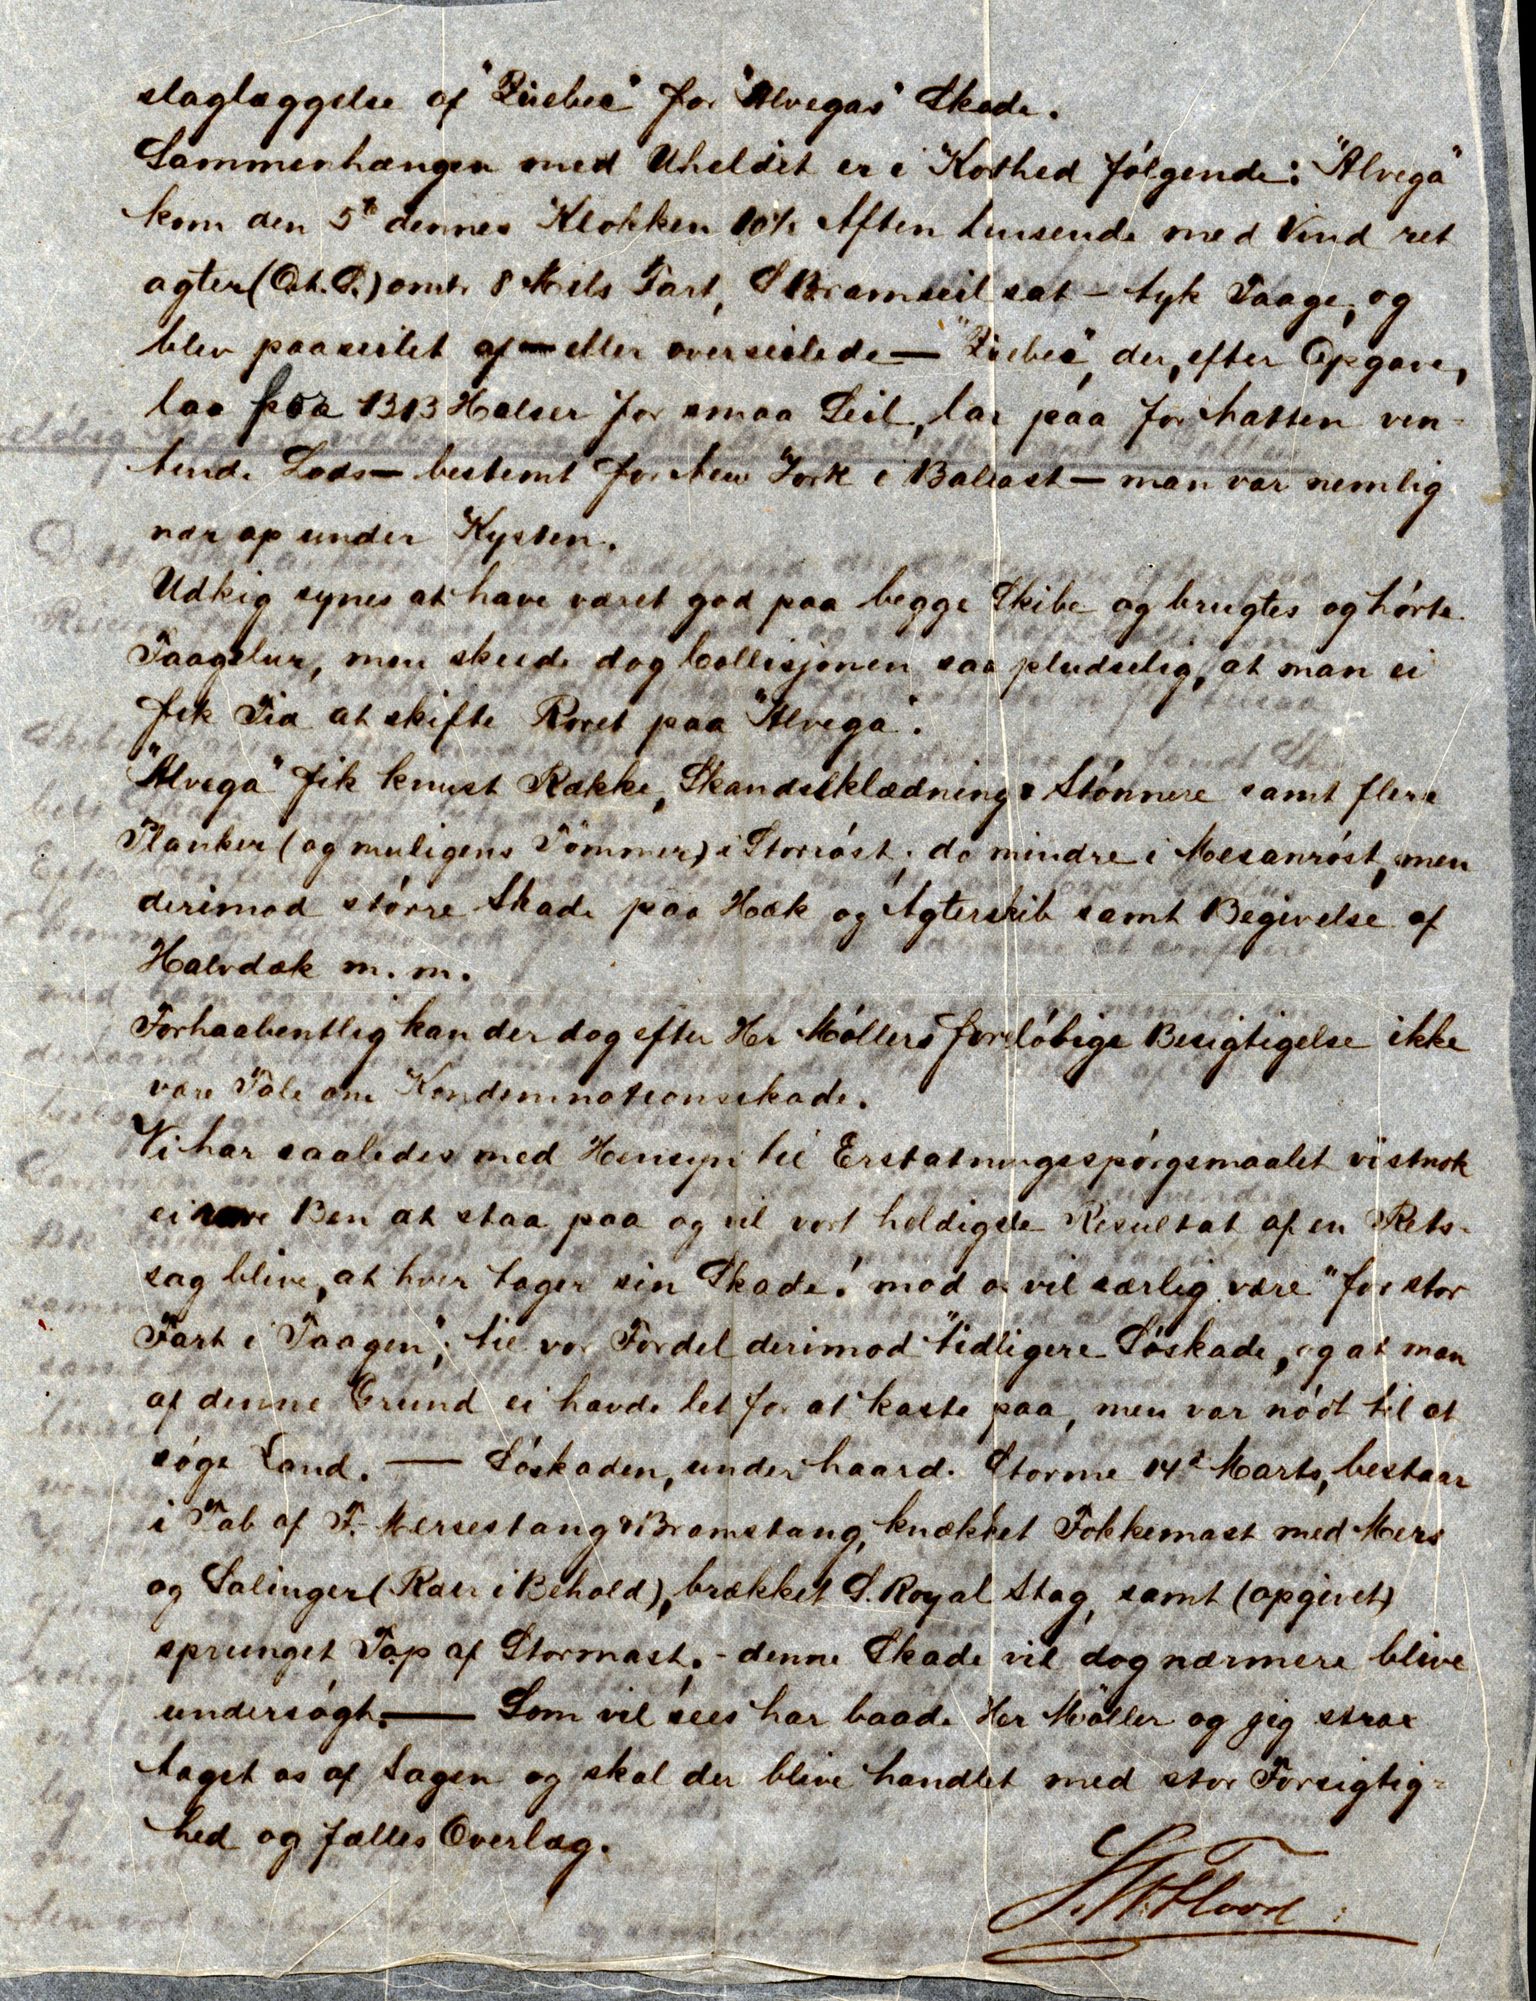 slaglæggelse af "Quebec" for "Alvegas" Skade.
Sammenhængen med Uheldet er i Korthed følgende: "Alvega"
kom den 5te dennes Klokken 10½ Aften lensende med Vind ret
agter (Ost. S.) omtr 8 Mils Fart, S Bramseil sat – tyk Taage, og
blev paaseilet af – eller overseilede – "Quebec", der, efter Opgave,
laa paa BB Halser for smaa Seil, laa paa for Natten ven-
tende Lods – bestemt for New York i Ballast – man var nemlig
nær op under Kysten.
Udkig synes at have været god paa begge Skibe og brugtes og hørte
Taagelur, men skede dog Collisjonen saa pludselig, at man ei
fik Tid at skifte Roret paa "Alvega".
"Alvega" fik knust Række, Skandseklædning & Stønnere samt flere
Planker (og muligens Tømmer) i Storrøst, do mindre i Mesanrøst, men
derimod større Skade paa Hæk og Agterskib samt Begivelse af
Halvdæk m. m.
Forhaabentlig kan der dog efter Hr Møllers foreløbige Besigtigelse ikke
være Tale om Kondemnationsskade.
Vi har saaledes med Hensyn til Erstatningsspørgsmaalet vistnok
ei Ben at staa paa og vil vort heldigste Resultat af en Rets-
sag blive, at hver tager sin Skade! mod os vil særlig være "for stor
Fart i Taagen"; til vor Fordel derimod "tidligere Søskade, og at man
af denne Grund ei havde let for at kaste paa, men var nødt til at
søge Land. — Søskaden, under haard Storme 14d Marts, bestaar
i Tab af F. Mersestang & Bramstang, knækket Fokkemast med Mers
og Salinger (Raaer i Behold), brækket S. Royal Stag, samt (opgivet)
sprunget Top af Stormast. – denne Skade vil dog nærmere blive
undersøgt. — Som vil sees har baade Her Møller og jeg strax
taget os af Sagen og skal der blive handlet med stor Forsigtig-
hed og fælles Overlæg.
Flood